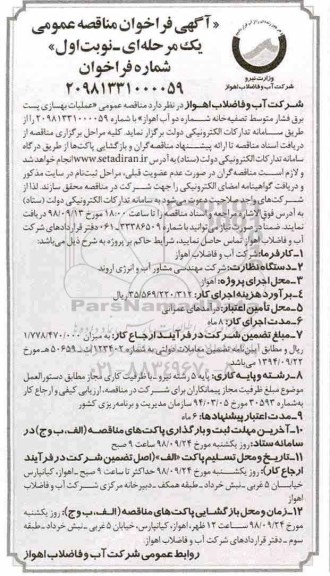 «آگهی فراخوان مناقصه عمومی
یک مرحله‌ای -نوبت اول»
شماره فراخوان
۲۰۹۸۱۳۳۱۰۰۰۰۵۹
وزارت نیرو
شرکت آب و فاضلاب اهواز
شرکت آب و فاضلاب اهواز در نظر دارد مناقصه عمومی «عملیات بهسازی پست
برق فشار متوسط تصفیه خانه شماره دو آب اهواز» با شماره ۲۰۹۸۱۳۳۱۰۰۰۰۵۹ را از
طریق سامانه تدارکات الکترونیکی دولت برگزار نماید. کلیه مراحل برگزاری مناقصه از
دریافت اسناد مناقصه تا ارائه پیشنهاد مناقصه گران و بازگشایی پاکت‌ها از طریق درگاه
سامانه تدارکات الکترونیکی دولت (ستاد) به آدرس www.setadiran.ir انجام خواهد شد
و لازم است مناقصه گران در صورت عدم عضویت قبلی، مراحل ثبت نام در سایت مذکور
و دریافت گواهینامه امضای الکترونیکی را جهت شرکت در مناقصه محقق سازند. لذا از
شرکت‌های واجد صلاحیت دعوت می‌شود به سامانه تدارکات الکترونیکی دولت (ستاد)
به آدرس فوق‌الاشاره مراجعه و اسناد مناقصه را تا ساعت ۱۸:۰۰ مورخ ۹۸/۰۹/۱۳ دریافت
نمایند. ضمنا در صورت نیاز می‌توانید با شماره ۳۳۳۸۶۵۰۹-۰۶۱ دفتر قراردادهای شرکت
آب و فاضلاب اهواز تماس حاصل نمایید. شرایط حاکم بر پروژه به شرح ذیل می‌باشد:
۱-کارفرما: شرکت آب و فاضلاب اهواز
۲-دستگاه نظارت: شرکت مهندسی مشاور آب و انرژی اروند
۳-محل اجرای پروژه: اهواز
۴-برآورد هزینه اجرای کار: ۳۵/۵۶۹/۲۲۰/۳۱۲ ریال
۵-محل تأمین اعتبار: درآمدهای عمومی
۶-مدت اجرای کار: ۸ ماه
۷-مبلغ تضمین شرکت در فرآیند ارجاع کار: به میزان ۱/۷۷۸/۴۷۰/۰۰۰
ریال و مطابق آیین نامه تضمین معاملات دولتی به شماره ۱۲۳۴۰۲/ت ۵۰۶۵۹ هـ مورخ
۱۳۹۴/۰۹/۲۲ می‌باشد.
۸-رشته و پایه کاری: پایه ۵ رشته نیرو - با ظرفیت کاری مجاز مطابق دستورالعمل
موضوع مبلغ ظرفیت مجاز پیمانکاران برای شرکت در مناقصه، ارزیابی کیفی و ارجاع کار
به شماره ۳۰۵۹۳ مورخ ۹۴/۰۳/۰۵ سازمان مدیریت و برنامه ریزی کشور
۹-مدت اعتبار پیشنهادها: ۶ ماه
۱۰-آخرین مهلت ثبت و بارگذاری پاکت‌های مناقصه (الف، ب و ج) در
سامانه ستاد: روز یکشنبه مورخ ۹۸/۰۹/۲۴ ساعت ۹ صبح
۱۱-تاریخ و محل تسلیم پاکت «الف» (اصل تضمین شرکت در فرآیند
ارجاع کار): روز یکشنبه مورخ ۹۸/۰۹/۲۴ حداکثر تا ساعت ۹ صبح - اهواز، کیانپارس
خیابان ۵ غربی - نبش خرداد - طبقه همکف - دبیرخانه مرکزی شرکت آب و فاضلاب
اهواز
۱۲-زمان و محل بازگشایی پاکت‌های مناقصه (الف، ب و ج): روز یکشنبه
مورخ ۹۸/۰۹/۲۴ ساعت ۱۲ ظهر، اهواز، کیانپارس، خیابان ۵ غربی - نبش خرداد - طبقه
سوم - دفتر قراردادهای شرکت آب و فاضلاب اهواز
روابط عمومی شرکت آب و فاضلاب اهواز